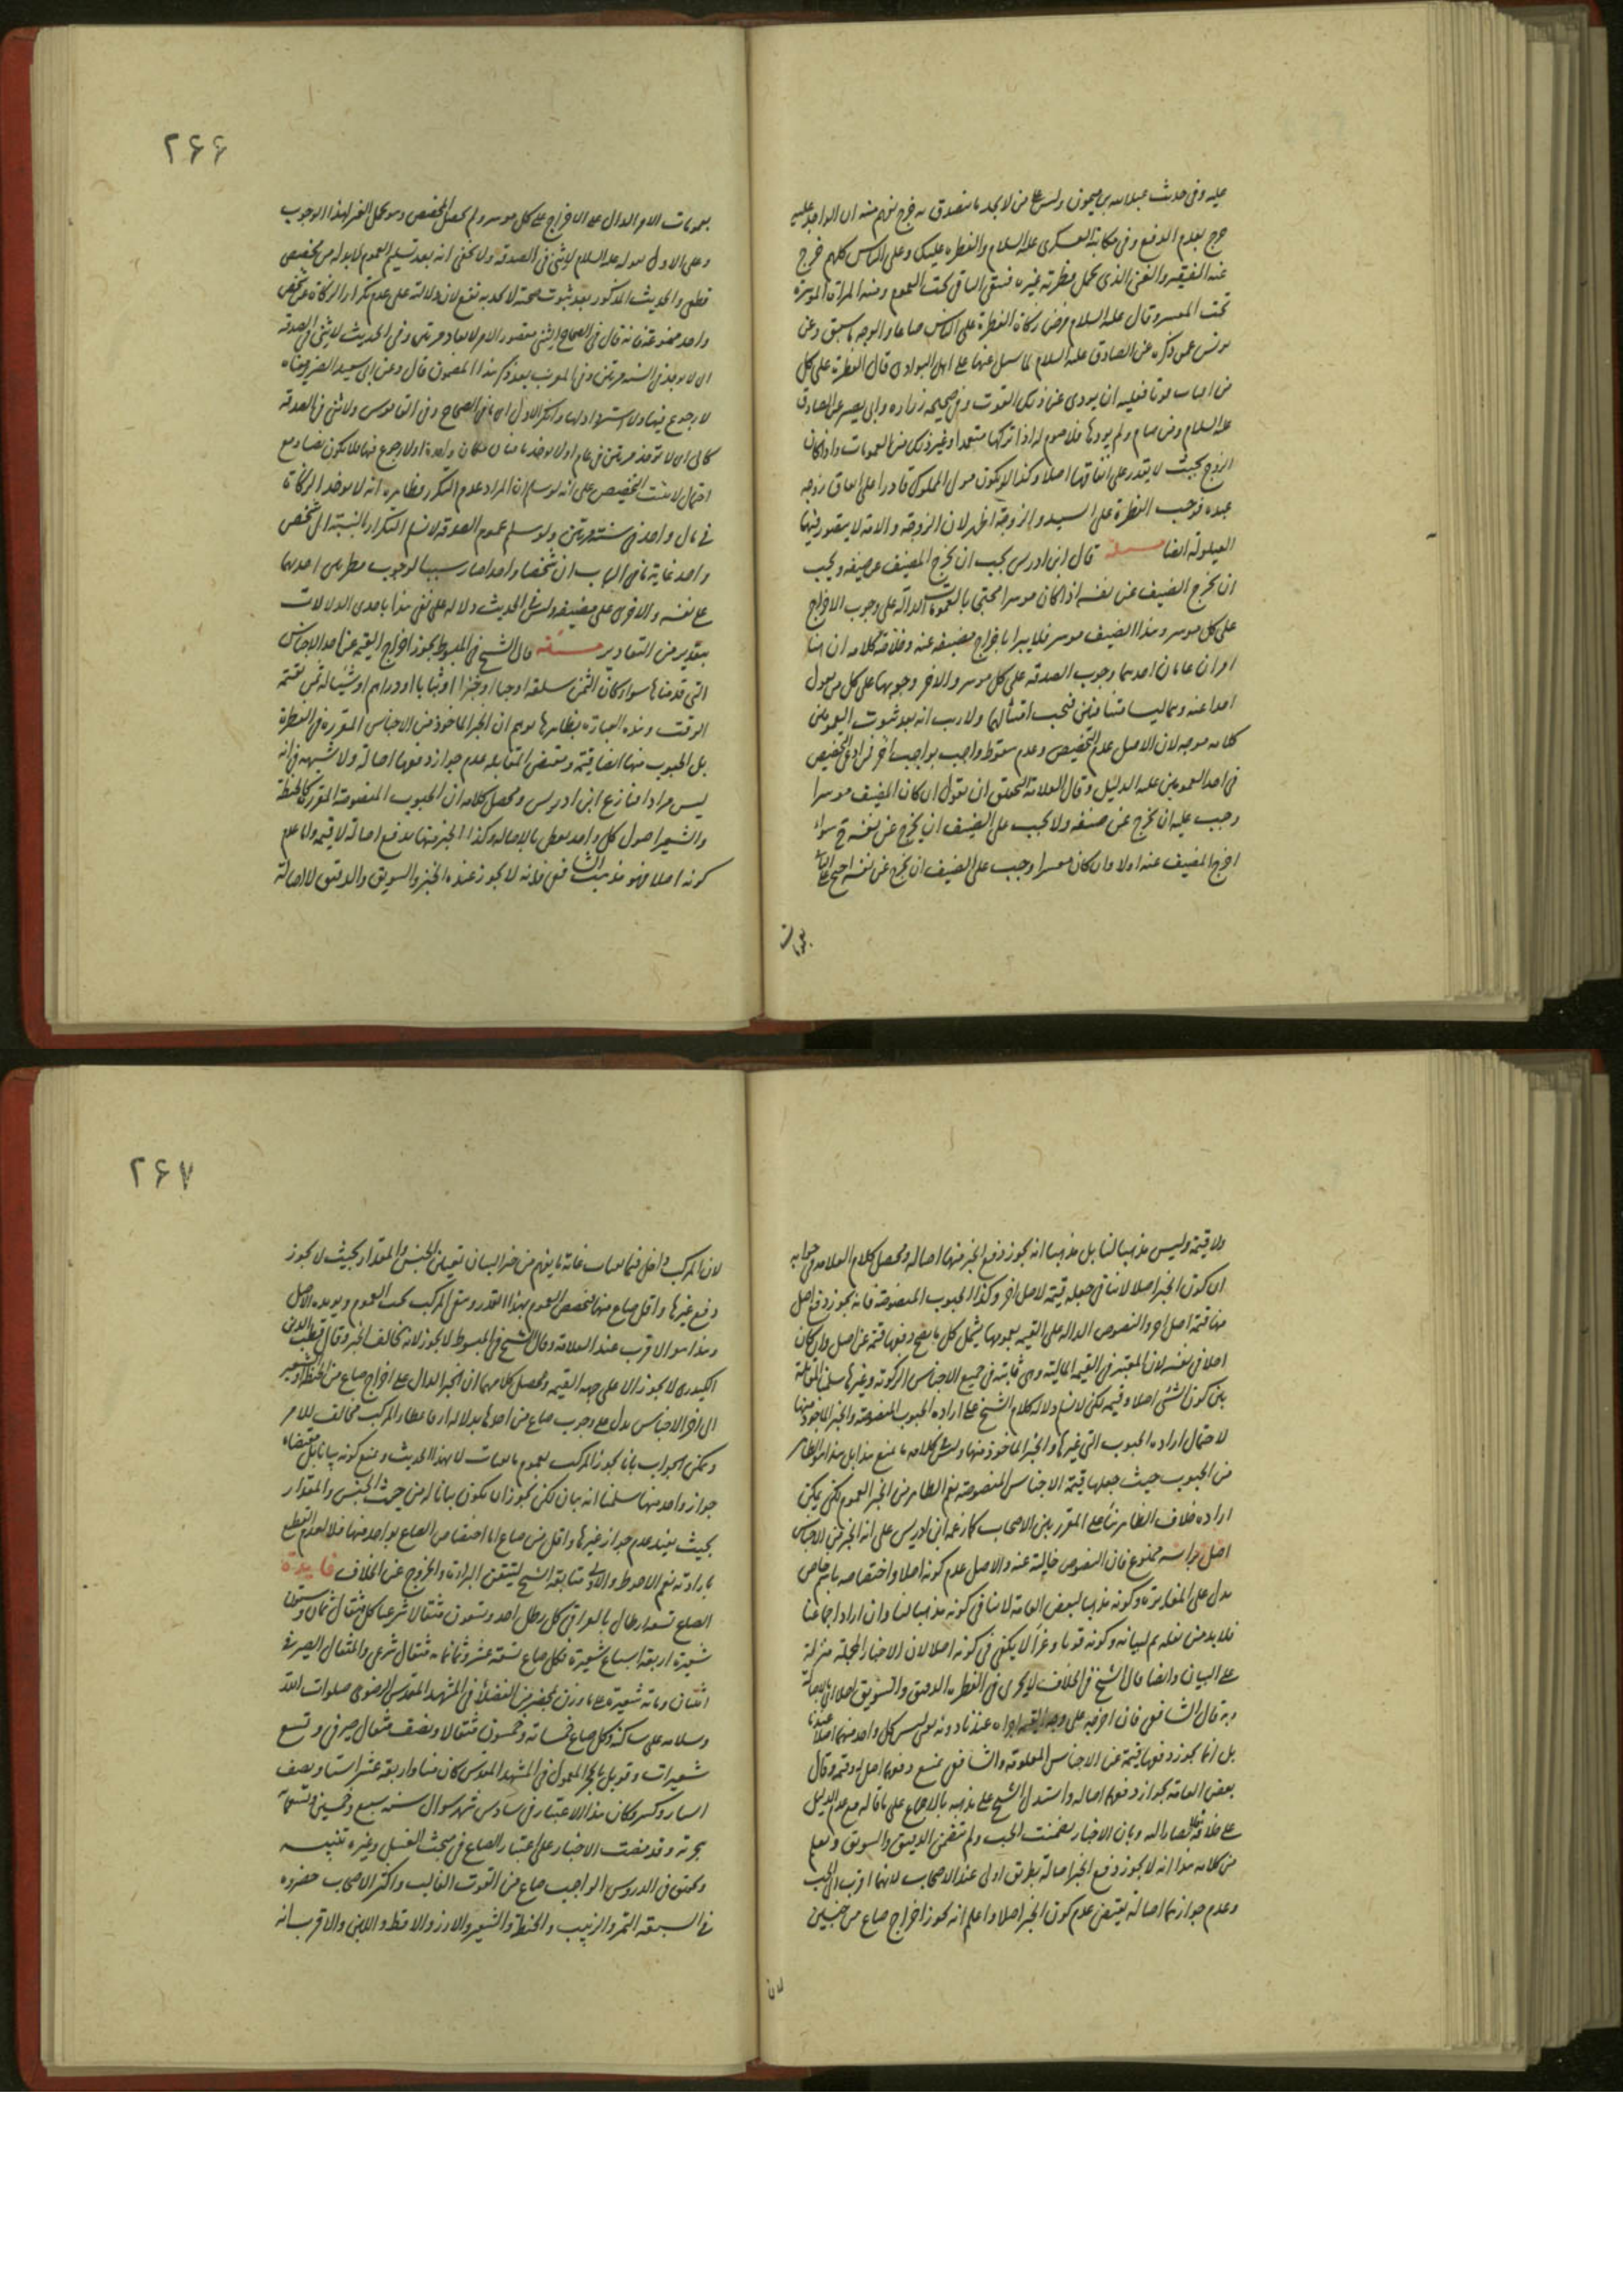 عليه وفى حديث عبدالله بن ميمون وليس على من لا يجد ما يتصدق به حرج يفهم منه ان الواجد عليه
حرج بعدم الدفع وفى مكاتبة العسكرى عليه السلام والفطرة عليك وعلى الناس كلهم خرج
عنه الفقير والغنى الذى تحمل فطرته غيره فبقى الباقى تحت العموم ومنه المراة الموسرة
تحت المعسر وقال عليه السلام فرض زكاة الفطرة على الناس صاعا والوجه ما سبق وعن
يونس عمن ذكره عن الصادق عليه السلام لما سئل عنها على اهل البوادى قال الفطرة على كل
من اصاب قوتا فعليه ان يودى عن ذلك القوت وفى صحيحة زرارة وابى بصير عن الصادق
عليه السلام ومن صام ولم يودها فلا صوم له اذا تركها متعمدا وغير ذلك من العمومات واذا كان
الزوج بحيث لا يقدر على انفاقها اصلا وكذا لو يكون مولى المملوك قادرا على انفاق زوجة
عبده فوجب الفطرة على السيد والزوجة اظهر لان الزوجة والامة لا يتصور فيها
العيلولة ايضا مسئلة قال ابن ادريس يجب ان يخرج المضيف عن ضيفه ويجب
ان يخرج الضيف عن نفسه اذا كان موسرا محتجا بالعمومات الدالة على وجوب الاخراج
على كل موسر وهذا الضيف موسر فلا يبرا باخراج مضيفه عنه وخلاصة كلامه ان هنا
امران عامان احدهما وجوب الصدقة على كل موسر والاخر وجوبها على كل من يعول
احدا عنه وهما ليسا متنافيين فيجب امتثالهما ولا ريب انه بعد ثبوت العمومين
كلامه موجه لان الاصل عدم التخصيص وعدم سقوط واجب بواجب اخر فمن ادعى التخصيص
فى احد العمومين عليه الدليل وقال العلامة التحقيق ان نقول ان كان المضيف موسرا
وجب عليه ان يخرج عن ضيفه ولا يجب على الضيف ان يخرج عن نفسه ح سواء
اخرج المضيف عنه اولا وان كان معسرا وجب على الضيف ان يخرج عن نفسه احتج
بعمومات
٢۶۶
بعمومات الامر الدال على الاخراج على كل موسر ولم يحصل المخصص وهو تحمل الغير لهذا الوجوب
وعلى الاول بقوله عليه السلام لا ثنى فى الصدقة ولا يخفى انه بعد تسليم العموم لابد له من مخصص
قطعى والحديث المذكور بعد ثبوت صحته لا يجديه نفع لان دلالته على عدم تكرار الزكاة عن شخص
واحد ممنوعة فانه قال فى الصحاح الثنى مقصور الامر لا يعاد مرتين وفى الحديث لا ثنى فى الصدقة
اى لا يوخذ فى السنة مرتين وفى المغرب بعد ذكر هذا المضمون قال وعن ابى سعيد الضرير معناه
لا رجوع فيها ولا استرداد لها وانكر الاول اى ما فى الصحاح وفى القاموس ولا ثنى فى الصدقة
كالى اى لا توخذ مرتين فى عام او لا يوخذ ناقتان مكان واحدة او لا رجوع فيها فلا يكون نصا ومع
احتمال لا يثبت التخصيص على انه لو سلم ان المراد عدم التكرر فظاهره انه لا يوخذ الزكاة
فى مال واحد فى سنته مرتين ولو سلم عموم الصدقة لا نسلم التكرار بالنسبة الى شخص
واحد غاية ما فى الباب ان شخصا واحدا صار سببا لوجوب فطرتين احدهما
على نفسه والاخرى على مضيفه وليس فى الحديث دلالة على نفى هذا باحدى الدلالات
بتقدير من التقادير مسئلة قال الشيخ فى المبسوط يجوز اخراج القيمة عن احد الاجناس
التى قدمناها سواء كان الثمن سلعة او حبا او خبزا او ثيابا او دراهم او شيئا له ثمن بقيمة
الوقت وهذه العبارة بظاهرها يوهم ان الخبز الماخوذ من الاجناس المقررة فى الفطرة
بل الحبوب منها ايضا قيمة ومقتضى المقابلة عدم جواز دفعها اصالة ولا شبهة فى انه
ليس مرادا فنازع ابن ادريس ومحصل كلامه ان الحبوب المنصوصة المقررة كالحنطة
والشعير اصول كل واحد يعطى بالاصالة وكذا الخبز منها يدفع اصالة لا قيمة واما عدم
كونه اصلا فهو مذهب الشافعى فانه لا يجوز عنده الخبز والسويق والدقيق لا اصالة
ولا قيمة وليس مذهبا لنا بل مذهبنا انه يجوز دفع الخبز منهما اصالة ومحصل كلام العلامة فى جوابه
ان كون الخبز اصلا لا ينافى جعله قيمة لاصل اخر وكذا الحبوب المنصوصة فانه يجوز دفع اصل
منها قيمة اصل اخر والنصوص الدالة على القيمة بعمومها يشمل كل ما يصح دفعها قيمة عن اصل وان كان
اصلا فى نفسه لان المعتبر فى القيمة المالية وهى ثابتة فى جميع الاجناس الزكوية وغيرها سلمنا المقابلة
بين كون الشئ اصلا وقيمة لكن لا نسلم دلالة كلام الشيخ على ارادة الحبوب المنصوصة والخبز الماخوذ منها
لاحتمال ارادة الحبوب التى غيرها والخبز الماخوذ منها وليس فى كلامه ما يمنع هذا بل هذا هو الظاهر
من الحبوب حيث جعلها قيمة الاجناس المنصوصة نعم الظاهر من الخبز العموم لكن يمكن
ارادة خلاف الظاهر بناء على المقرر بين الاصحاب كما زعمه ابن ادريس على انه الخبز من الاجناس
اصل براسه ممنوع فان النصوص خالية عنه والاصل عدم كونه اصلا واختصاصه باسم خاص
يدل على المغايرة وكونه مذهبا لبعض العامة لا ينافى كونه مذهبا لنا وان اراد اجماعنا
فلابد من نقله ثم لبيانه وكونه قوتا وغذاء لا يكفى فى كونه اصلا لان الاخبار المجملة منزلة
على البيان وايضا قال الشيخ فى الخلاف لا يجزى فى الفطرة الدقيق والسويق اصلا اى اصالة
وبه قال الشافعى فان اخرجه على وجه القيمة اجزاه عندنا دونه يعنى ليس كل واحد منهما اصلا عندنا
بل انما يجوز دفعها قيمة عن الاجناس المعلومة والشافعى يمنع دفعهما اصلا وقيمة وقال
بعض العامة بجواز دفعهما اصالة واستدل الشيخ على مذهبه بالاجماع على ما قاله مع عدم الدليل
على خلافه وبان الاخبار تضمنت الحب ولم تتضمن الدقيق والسويق ويعلم
من كلامه هذا انه لا يجوز دفع الخبز اصالة بطريق اولى عند الاصحاب لانهما اقرب الى الحب
وعدم جوازهما اصالة يقتضى عدم كون الخبز اصلا واعلم انه يجوز اخراج صاع من جنسين
لان
٢۶٧
لان المركب داخل فيما غايته ما يفهم من خبر البيان تعيين الجنس والمقدار بحيث لا يجوز
دفع غيرها واقل صاع منها فتخصص العموم بهذا القدر وبقى المركب تحت العموم ويويده الاصل
وهذا هو الاقرب عند العلامة وقال الشيخ فى المبسوط لا يجوز لانه يخالف الخبر وقال قطب الدين
الكيدرى لا يجوز الا على جهة القيمة ومحصل كلامهما ان الخبر الدال على اخراج صاع من الحنطة او الشعير
الى اخر الاجناس يدل على وجوب صاع من احدها بدلالة او فاعطاء المركب مخالف للامر
ويمكن الجواب بانا نجوز المركب لعموم لا بهذا الحديث ونمنع كونه بيانا بل مقتضاه
جواز واحد منها سلمنا انه بيان لكن يجوز ان يكون بيانا له من حيث الجنس والمقدار
بحيث يفيد عدم جواز غيرها واقل من صاع اما اختصاص الصاع بواحد منها فلا لعدم القطع
بارادته نعم الاحوط والاولى متابعة الشيخ لتيقن البراءة والخروج عن الخلاف فايدة
الصاع تسعة ارطال بالعراقى كل رطل احد وتسعون مثقالا شرعيا كل مثقال ثمان وستون
شعيرة اربعة اسباع شعيرة فكل صاع تسعة عشر وثمانمائة مثقال شرعى والمثقال الصيرفى
اثنان ومائة شعيرة على ما وزن بمحضر من الفضلاء فى المشهد المقدس الرضوى صلوات الله
وسلامه على ساكنه وكل صاع خمسمائة وخمسون مثقالا ونصف مثقال صرفى وتسع
شعيرات وقوبل بالحجر المعمول فى المشهد المقدس كان منا واربعة عشر استارا ونصف
استار وكسر وكان هذا الاعتبار فى سادس شهر شوال سنه سبع وخمسين وتسعمائة
هجرية وقد مضت الاخبار على اعتبار الصاع فى مبحث الغسل وغيره تنبيه
وتحقيق فى الدروس الواجب صاع من القوت الغالب واكثر الاصحاب حصروه
فى السبعة التمر والزبيب والحنطة والشعير والارز والاقط واللبن والاقرب انه